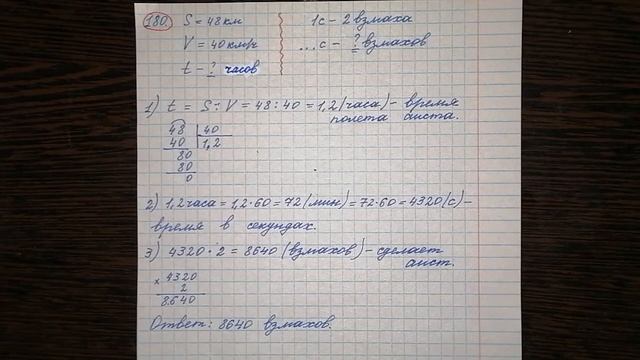 180. S = 48 км 1с - 2 взмаха
V = 40 км/ч ...с - ? взмахов
t - ? часов
1) t = S : V = 48 : 40 = 1,2 (часа) - время
полета аиста.
48 | 40
40 | 1,2
80
80
0
2) 1,2 часа = 1,2 · 60 = 72 (мин) = 72 · 60 = 4320 (с) -
время в секундах.
3) 4320 · 2 = 8640 (взмахов) - сделает
аист.
× 4320
2
8640
Ответ: 8640 взмахов.